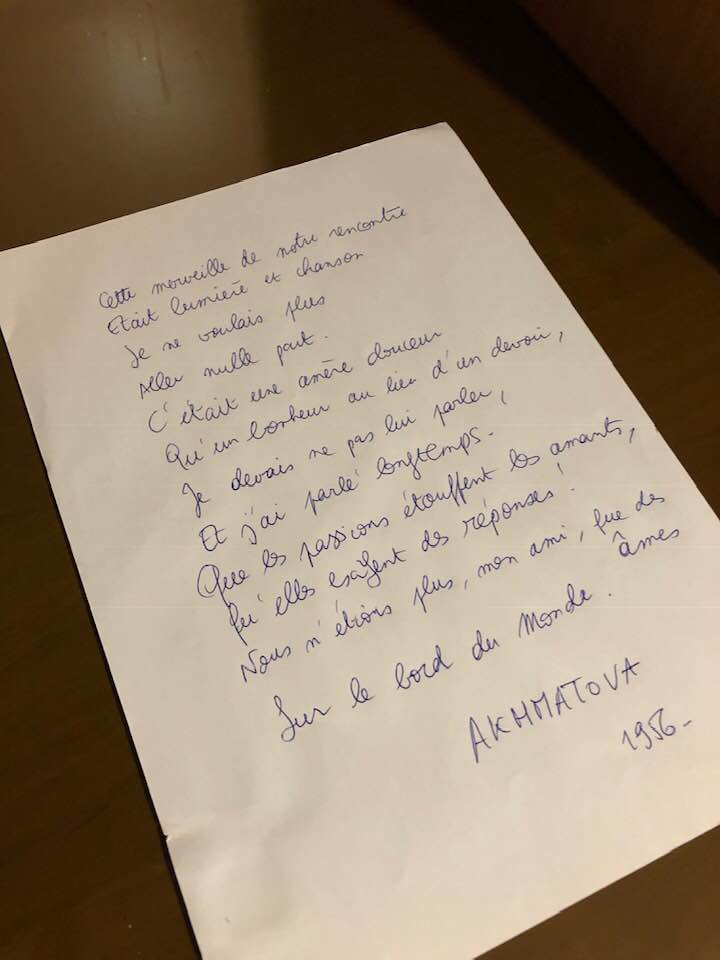 Cette merveille de notre rencontre
Etait lumière et chanson
Je ne voulais plus
Aller nulle part.
C'était une amère douceur
Qu'un bonheur au lieu d'un devoir,
Je devais ne pas lui parler,
Et j'ai parlé longtemps.
Que les passions étouffent les amants,
Qu'elles exigent des réponses!
Nous n'étions plus, mon ami, que des
âmes
Sur le bord du Monde.
AKHMATOVA
1956-